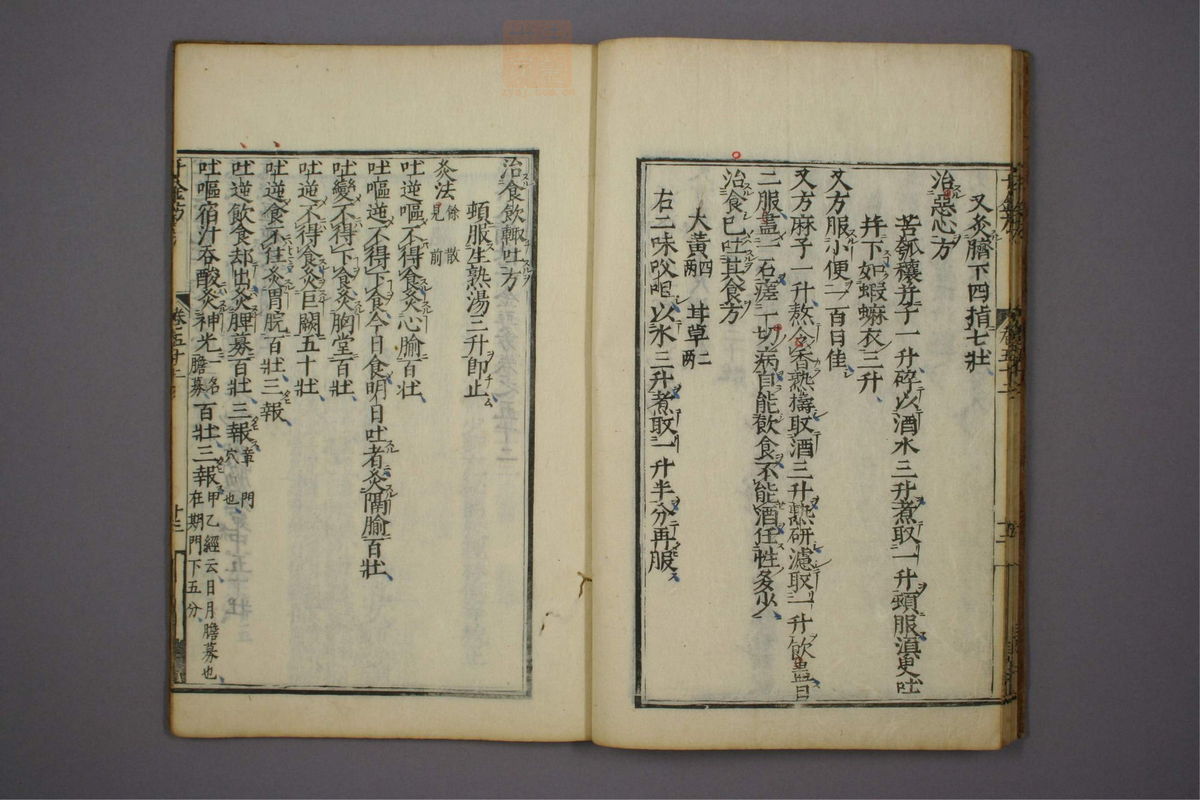 又灸臍下四指七壯
治惡心方
苦瓠穰并子一升碎以酒水三升煮取一升頓服湏臾吐
并下如蝦蟆衣三升
又方服小便一百日佳
又方麻子一升熬令香熟擣取酒三升熱研濾取一升飲盡日
二服盡一石瘥一切病自能飲食不能酒任性多少
治食已吐其食方
大黃四兩 甘草二兩
右二味㕮咀以水三升煮取一升半分再服
治食飲輙吐方
頓服生熟湯三升即止
灸法餘散見前
吐逆嘔不得食灸心腧百壯
吐嘔逆不得下食今日食明日吐者灸膈腧百壯
吐變不得下食灸胸堂百壯
吐逆不得食灸巨闕五十壯
吐逆食不住灸胃脘百壯三報
吐逆飲食却出灸脾募百壯三報章門穴也
吐嘔宿汁吞酸灸神光一名膽募百壯三報甲乙經云日月膽募也在期門下五分